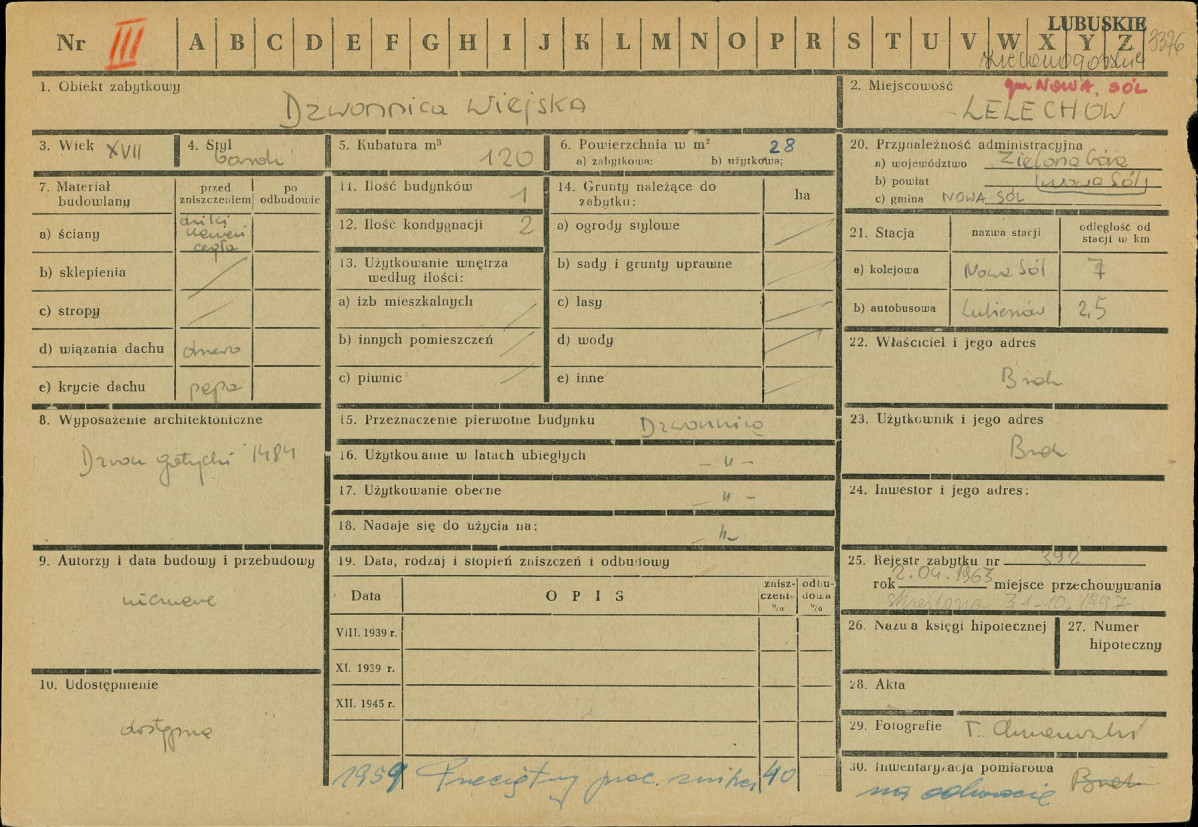 LUBUSKIE
Nr III A B C D E F G H I J K L M N O P R S T U V W X Y Z 3376
1. Obiekt zabytkowy
Dzwonnica wiejska
2. Miejscowość gm NOWA SÓL
LELECHÓW
3. Wiek XVII
4. Styl barok
5. Kubatura m³ 120
6. Powierzchnia w m² 28
a) zabytkowa: b) użytkowa:
7. Materiał budowlany
przed zniszczeniem
po odbudowie
a) ściany
kamień
cegła
b) sklepienia
c) stropy
d) wiązania dachu drewo
e) krycie dachu papa
8. Wyposażenie architektoniczne
Dzwon gotycki 1484
9. Autorzy i data budowy i przebudowy
nieznane
10. Udostępnienie
dostępna
11. Ilość budynków 1
12. Ilość kondygnacji 2
13. Użytkowanie wnętrza według ilości:
a) izb mieszkalnych
b) innych pomieszczeń
c) piwnic
14. Grunty należące do zabytku: ha
a) ogrody stylowe
b) sady i grunty uprawne
c) lasy
d) wody
e) inne
15. Przeznaczenie pierwotne budynku Dzwonnica
16. Użytkowanie w latach ubiegłych – " –
17. Użytkowanie obecne – " –
18. Nadaje się do użycia na: – " –
19. Data, rodzaj i stopień zniszczeń i odbudowy
Data OPIS zniszczenia % odbudowa %
VIII. 1939 r.
XI. 1939 r.
XII. 1945 r.
1959 Przeciętny proc. zniszcz 40
20. Przynależność administracyjna
a) województwo Zielona Góra
b) powiat Nowa Sól
c) gmina NOWA SÓL
21. Stacja nazwa stacji odległość od stacji w km
a) kolejowa Nowa Sól 7
b) autobusowa Lubieszów 2,5
22. Właściciel i jego adres
Brak
23. Użytkownik i jego adres
Brak
24. Inwestor i jego adres:
25. Rejestr zabytku nr 392
rok 2.04.1963 miejsce przechowywania
skreślona 31.10.1997
26. Nazwa księgi hipotecznej
27. Numer hipoteczny
28. Akta
29. Fotografie
30. Inwentaryzacja pomiarowa Brak
na odwrocie